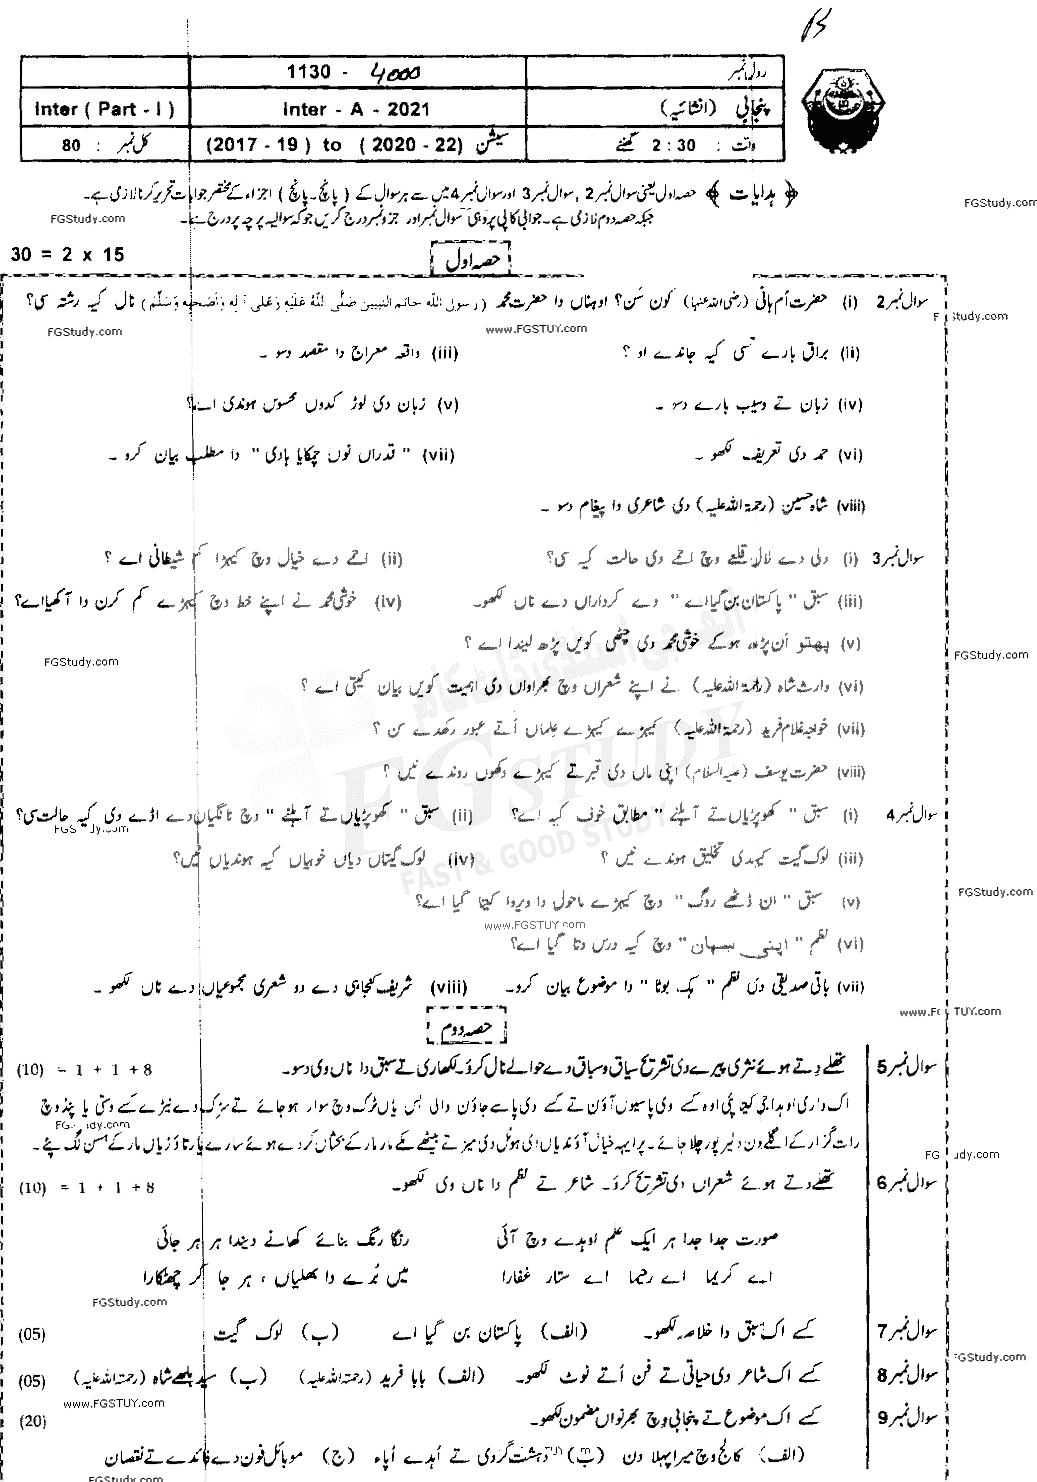 1130 - 4000
رول نمبر
Inter ( Part - I )
Inter - A - 2021
پنجابی (انشائیہ)
کل نمبر : 80
سیشن (2017 - 19) to (2020 - 22)
وقت : 2:30 گھنٹے
﴿ ہدایات ﴾ حصہ اول یعنی سوال نمبر 2 , سوال نمبر 3 اور سوال نمبر 4 میں سے ہر سوال کے ( پانچ - پانچ ) اجزاء کے مختصر جوابات تحریر کرنا لازمی ہے۔
FGStudy.com
جبکہ حصہ دوم لازمی ہے۔ جوابی کاپی پر وہی سوال نمبر اور جزو نمبر درج کریں جو کہ سوالیہ پرچہ پر درج ہے۔
FGStudy.com
30 = 2 x 15
حصہ اول
سوال نمبر 2 (i) حضرت اُم ہانی (رضی اللہ عنہا) کون سَن؟ اوہناں دا حضرت محمد (رسول اللہ خاتم النبیین صَلَّی اللہُ عَلَیْہِ وَعَلٰی آلِہٖ وَاَصْحٰبِہٖ وَسَلَّمَ) نال کیہ رشتہ سی؟
FGStudy.com
www.FGSTUY.com
(ii) براق بارے تسی کیہ جاندے او ؟
(iii) واقعہ معراج دا مقصد دسو ۔
(iv) زبان تے وسیب بارے دسو ۔
(v) زبان دی لوڑ کدوں محسوس ہوندی اے؟
(vi) حمد دی تعریف لکھو ۔
(vii) " قدراں نوں چمکایا ہادی " دا مطلب بیان کرو ۔
(viii) شاہ حسین (رحمۃ اللہ علیہ) دی شاعری دا پیغام دسو ۔
سوال نمبر 3 (i) دلی دے لال قلعے وچ اجے دی حالت کیہ سی؟
(ii) اجے دے خیال وچ کیہڑا کم شیطانی اے ؟
(iii) سبق " پاکستان بن گیا اے " دے کرداراں دے ناں لکھو۔
(iv) خوشی محمد نے اپنے خط وچ کیہڑے کم کرن دا آکھیا اے؟
(v) پھتو اَن پڑھ ہو کے خوشی محمد دی چٹھی کویں پڑھ لیندا اے ؟
FGStudy.com
FGStudy.com
(vi) وارث شاہ (رحمۃ اللہ علیہ) نے اپنے شعراں وچ بھراواں دی اہمیت کویں بیان کیتی اے ؟
(vii) خواجہ غلام فرید (رحمۃ اللہ علیہ) کیہڑے کیہڑے علماں اُتے عبور رکھدے سن ؟
(viii) حضرت یوسف (علیہ السلام) اپنی ماں دی قبر تے کیہڑے دکھوں روندے نیں ؟
سوال نمبر 4 (i) سبق " کھوپڑیاں تے آہلنے " مطابق خوف کیہ اے؟
(ii) سبق " کھوپڑیاں تے آہلنے " وچ ٹانگیاں دے اڈے دی کیہ حالت سی؟
(iii) لوک گیت کیہدی تخلیق ہوندے نیں ؟
(iv) لوک گیتاں دیاں خوبیاں کیہ ہوندیاں نیں؟
FGStudy.com
(v) سبق " ان ڈٹھے روگ " وچ کیہڑے ماحول دا ویروا کیتا گیا اے؟
www.FGSTUY.com
(vi) نظم " اپنی پہچان " وچ کیہ درس دتا گیا اے؟
(vii) باقی صدیقی دی نظم " ہک بوٹا " دا موضوع بیان کرو۔
(viii) شریف کنجاہی دے دو شعری مجموعیاں دے ناں لکھو ۔
حصہ دوم
سوال نمبر 5 تھلے دِتے ہوئے نثری پیرے دی تشریح سیاق و سباق دے حوالے نال کرو۔ لکھاری تے سبق دا ناں وی دسو۔
(10) = 1 + 1 + 8
اک واری اوہدا جی کیتا پئی اوہ کسے وی پاسیوں آؤن تے کسے دی پاسے جاؤن والی بس یاں ٹرک وچ سوار ہو جائے تے سڑک دے نیڑے کسے وستی یا پنڈ وچ
رات گزار کے اگلے دن دلیر پور چلا جائے۔ پر ایہہ خیال آؤندیاں ای ہوٹل دی میز تے بیٹھے گے مار مار کے بکشاں کر دے ہوئے سارے یار تاڑیاں مار کے ہسن لگ پئے۔
سوال نمبر 6 تھلے دتے ہوئے شعراں دی تشریح کرو۔ شاعر تے نظم دا ناں وی لکھو۔
(10) = 1 + 1 + 8
صورت جدا جدا ہر ایک علم اوہدے وچ آئی
رنگا رنگ بنائے کھانے دیندا ہر ہر جائی
اے کریما اے رحیما اے ستار غفارا
میں بُرے دا بھلیاں ، ہر جا کر چھٹکارا
FGStudy.com
سوال نمبر 7 کسے اک سبق دا خلاصہ لکھو۔ (الف) پاکستان بن گیا اے (ب) لوک گیت
(05)
سوال نمبر 8 کسے اک شاعر دی حیاتی تے فن اُتے نوٹ لکھو۔ (الف) بابا فرید (رحمۃ اللہ علیہ) (ب) سید بلھے شاہ (رحمۃ اللہ علیہ)
(05)
www.FGSTUY.com
سوال نمبر 9 کسے اک موضوع تے پنجابی وچ بھرنواں مضمون لکھو۔
(20)
(الف) کالج وچ میرا پہلا دن (ب) دہشت گردی تے اُہدے اُپاء (ج) موبائل فون دے فائدے تے نقصان
FGStudy.com
FG STUDY
FAST & GOOD STUDY